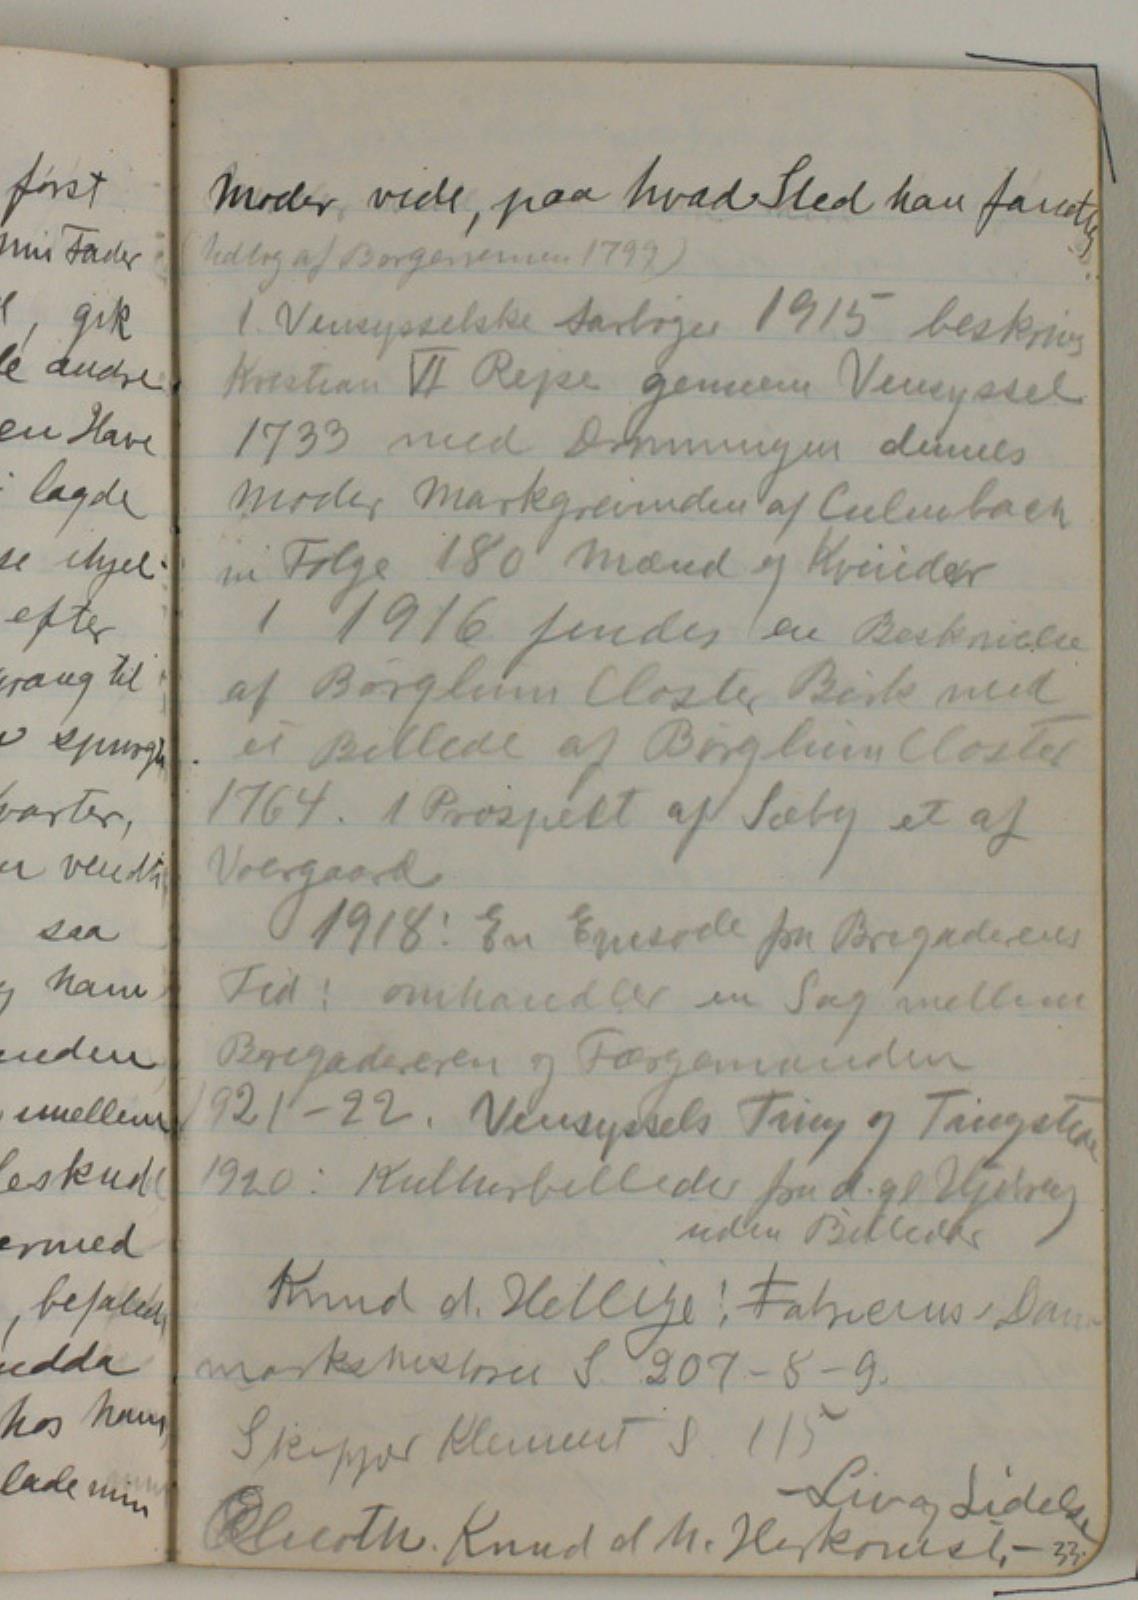 først
min Fader
, gik
le andre
en Have
lagde
se ihjel
efter
trang til
spurgte
varter,
n vendte
saa
g ham
nden
imellem
beskudt
ermed
, befalede
edda
hos ham,
lade min
Moder vide, paa hvad Sted han fandtes.
(Udtog af Borgervennen 1799)
I Vensysselske Aarbøger 1915 beskrives
Kristian VI Rejse gennem Vensyssel
1733 med Dronningen dennes
Moder Markgrevinden af Culmbach
Følge 180 Mænd og Kvinder
I 1916 findes en Beskrivelse
af Børglum Closter Birk med
et Billede af Børglum Closter
1764. 1 Prospekt af Sæby et af
Voergaard
1918: En Episode fra Brigaderens
Tid: omhandler en Sag mellem
Brigadereren og Færgemanden
1921-22. Vensyssels Ting og Tingsteder
1920: Kulturbilleder fra d. gl Hjørring
uden Billeder
Knud d. Hellige: Fabricius Dan-
markshistorie S. 207-8-9.
Skipper Klement S 115
- Liv og Lidelse
Knud d. h. Herkomst, - 33